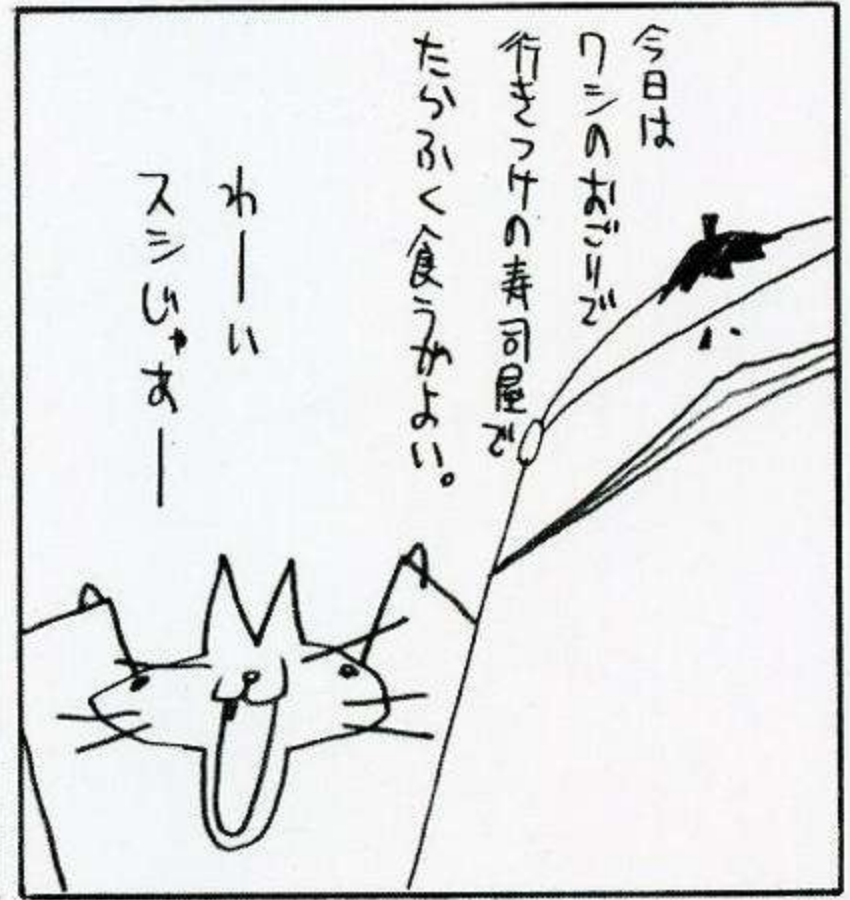 今日は
ワシのおごりで
行きつけの寿司屋で
たらふく食うがよい。
わーい
スシじゃあー